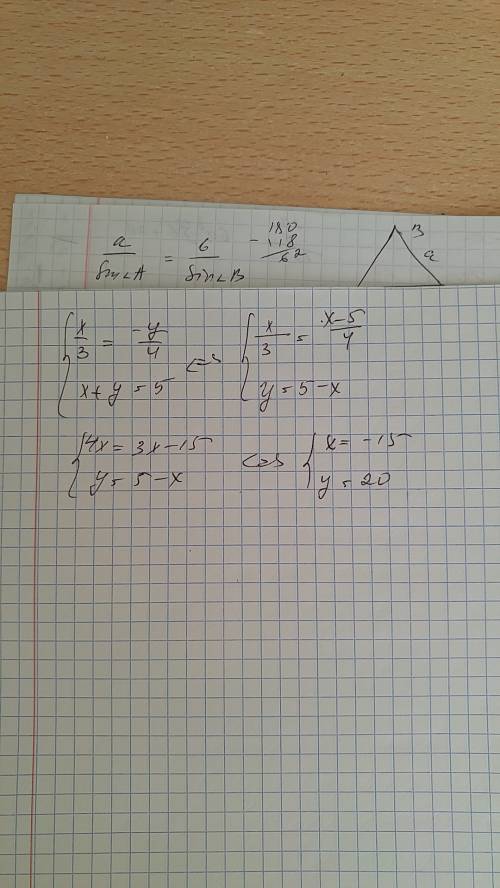 a/sin∠A = b/sin∠B
180
- 118
62
B
a
{ x/3 = -y/4
x + y = 5 <=>
{ x/3 = x-5/4
y = 5 - x
{ 4x = 3x - 15
y = 5 - x
<=> { x = -15
y = 20